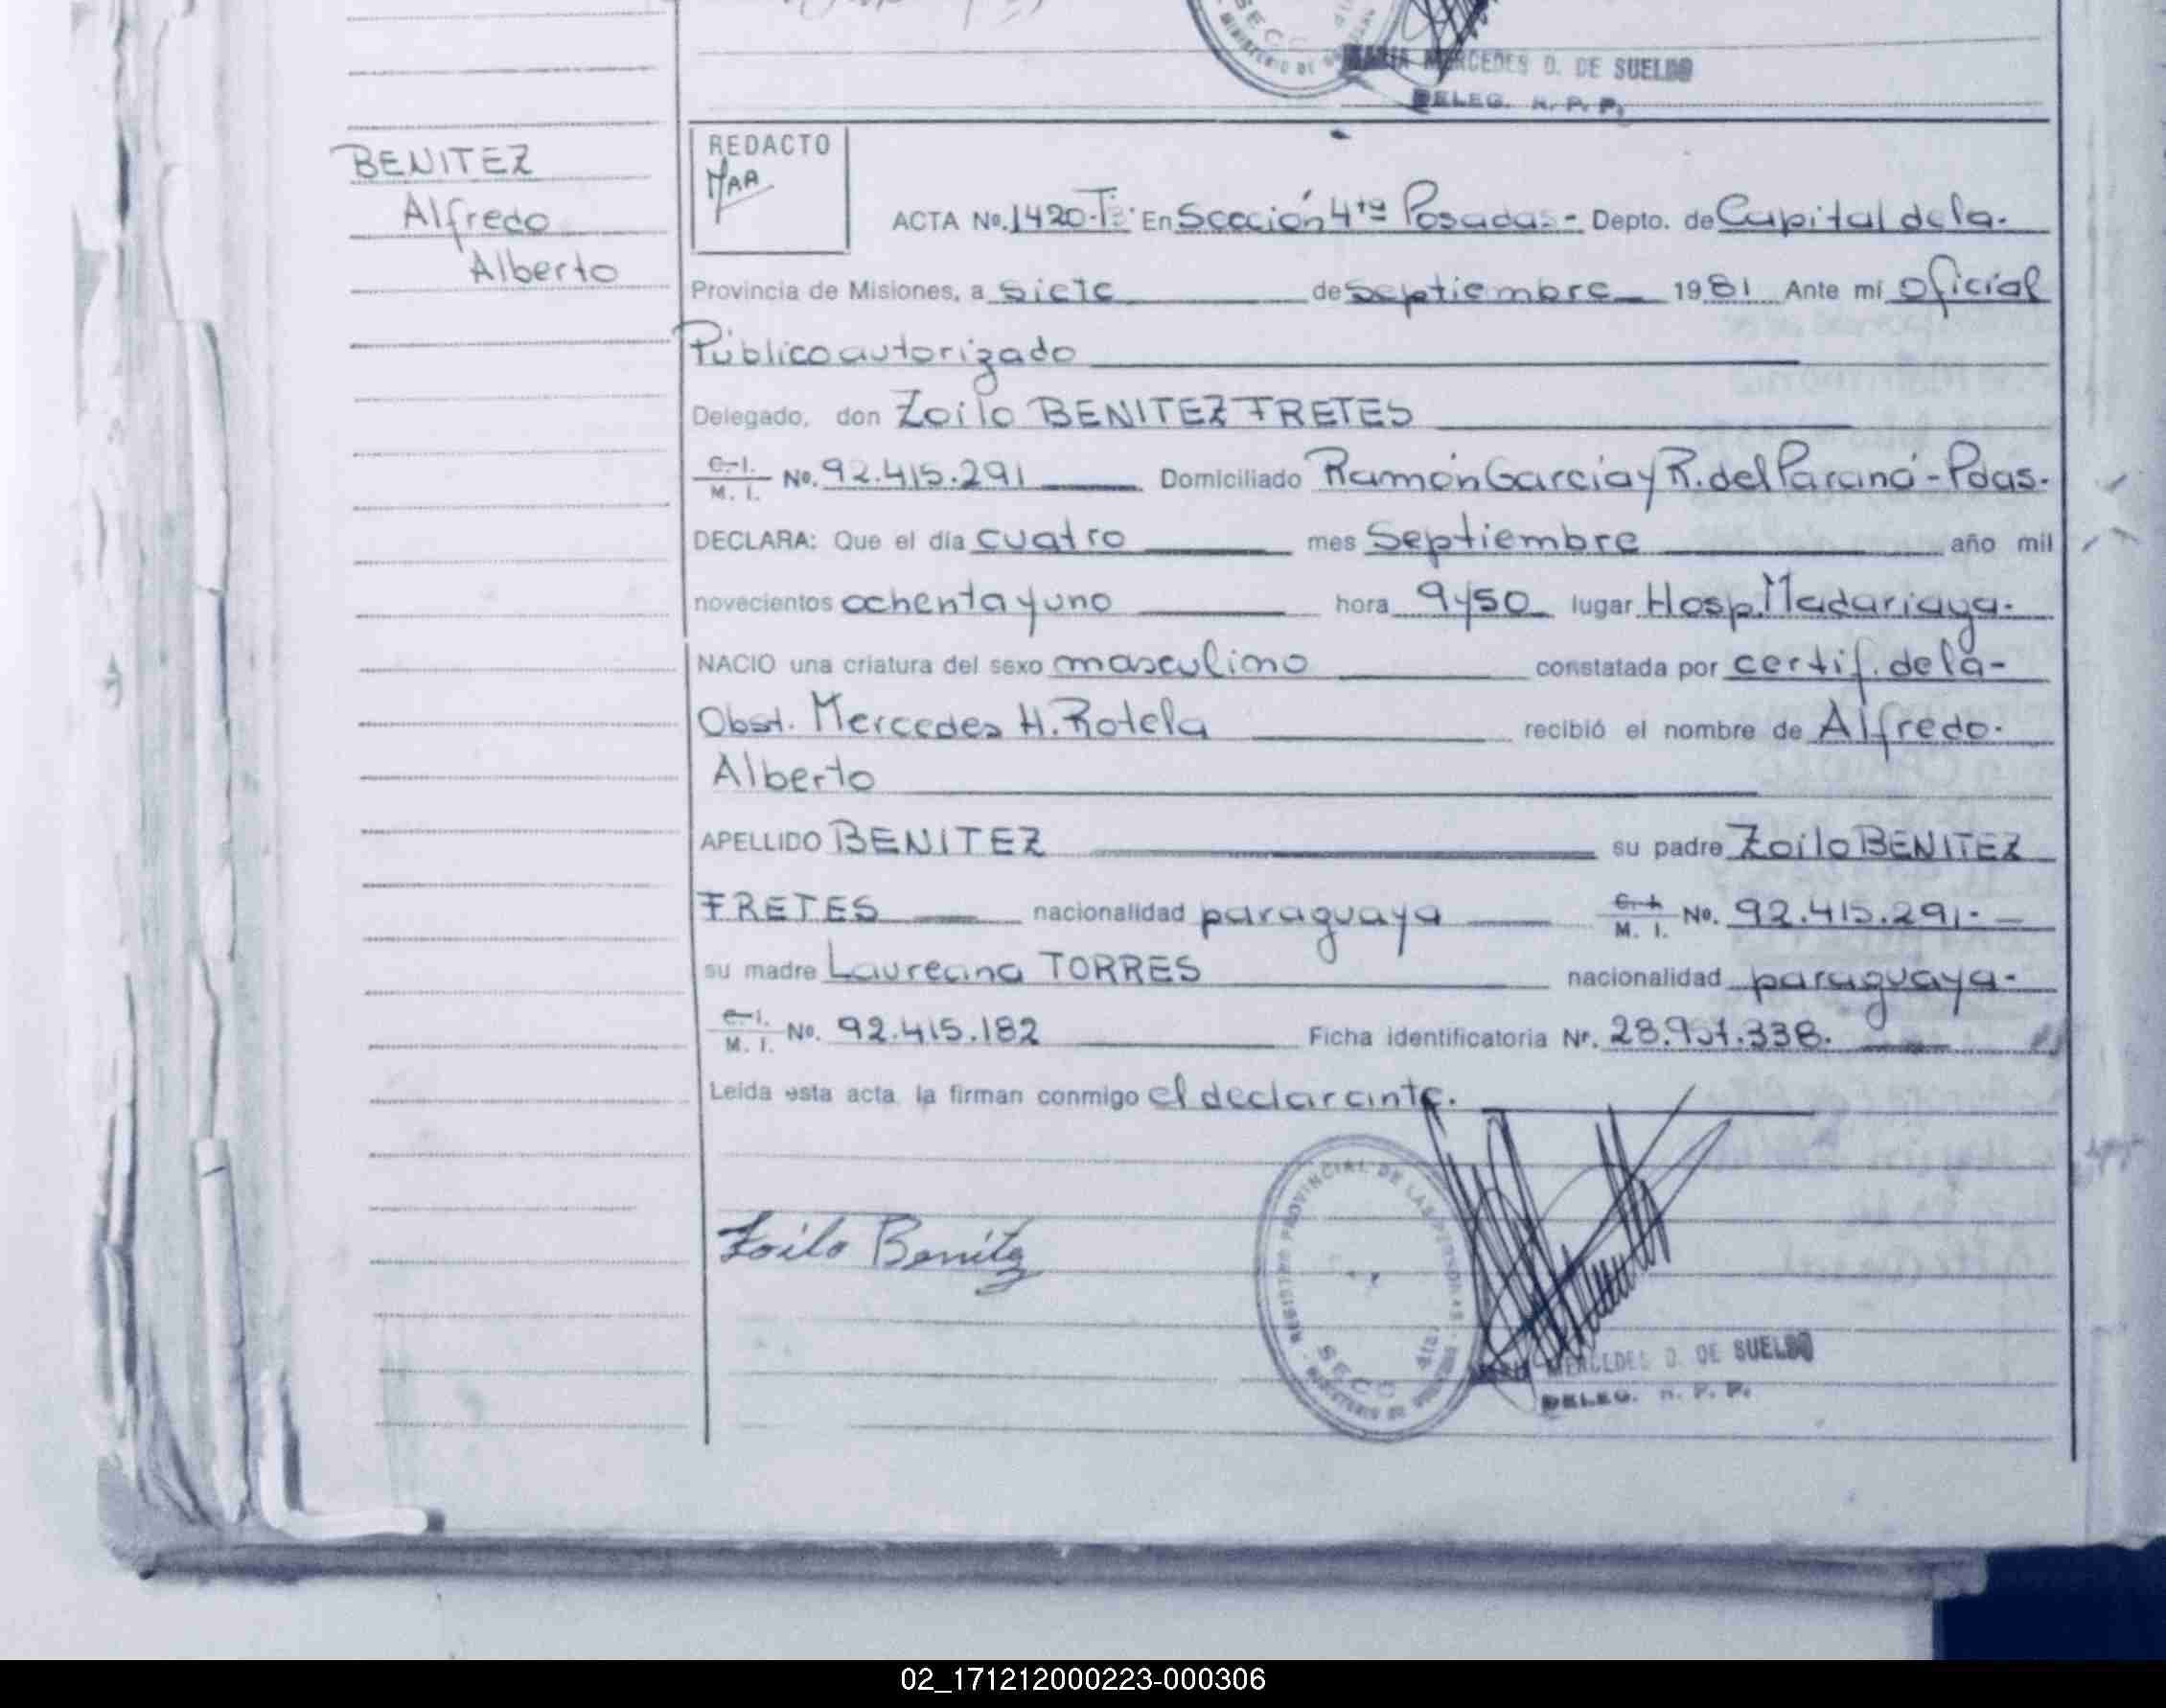 MARIA MERCEDES D. DE SUELDO
DELEG. R. P. P.
BENITEZ
Alfredo
Alberto
REDACTO
ACTA No. 1420-Tº: En Sección 4ta Posadas.- Depto. de Capital de la.
Provincia de Misiones, a siete de septiembre 1981 Ante mi Oficial
Público autorizado
Delegado, don Zoilo BENITEZ FRETES
C. I. / M. I. No. 92.415.291 Domiciliado Ramón García y R. del Paraná - Pdas.
DECLARA: Que el día cuatro mes Septiembre año mil
novecientos ochenta y uno hora 9y50 lugar Hosp. Madariaga.
NACIO una criatura del sexo masculino constatada por certif. de la-
Obst. Mercedes H. Rotela recibió el nombre de Alfredo.
Alberto
APELLIDO BENITEZ su padre Zoilo BENITEZ
FRETES nacionalidad paraguaya C. I. / M. I. No. 92.415.291.
su madre Laureana TORRES nacionalidad paraguaya-
C. I. / M. I. No. 92.415.182 Ficha identificatoria Nr. 28.9 .338.
Leida esta acta la firman conmigo el declarante.
Zoilo Benitez
REGISTRO PROVINCIAL DE LAS PERSONAS - MINISTERIO DE
SECC 4ta.
MERCEDES D. DE SUELDO
DELEG. R. P. P.
02_171212000223-000306